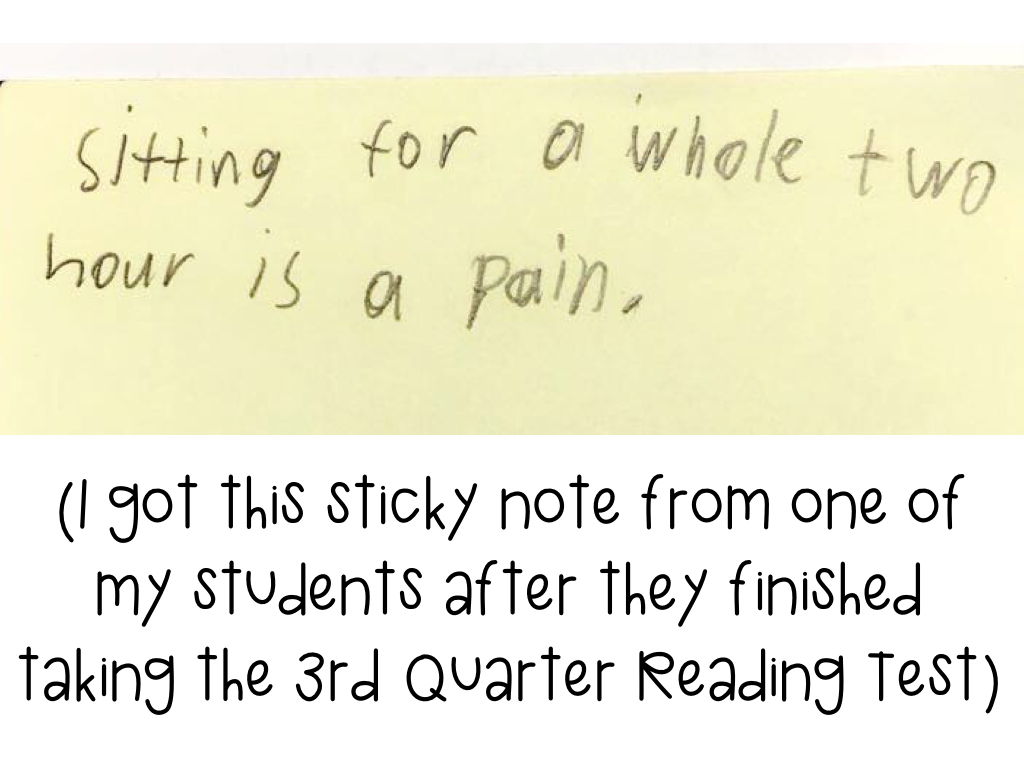 sitting for a whole two
hour is a pain.
(I got this sticky note from one of
my students after they finished
taking the 3rd Quarter Reading Test)